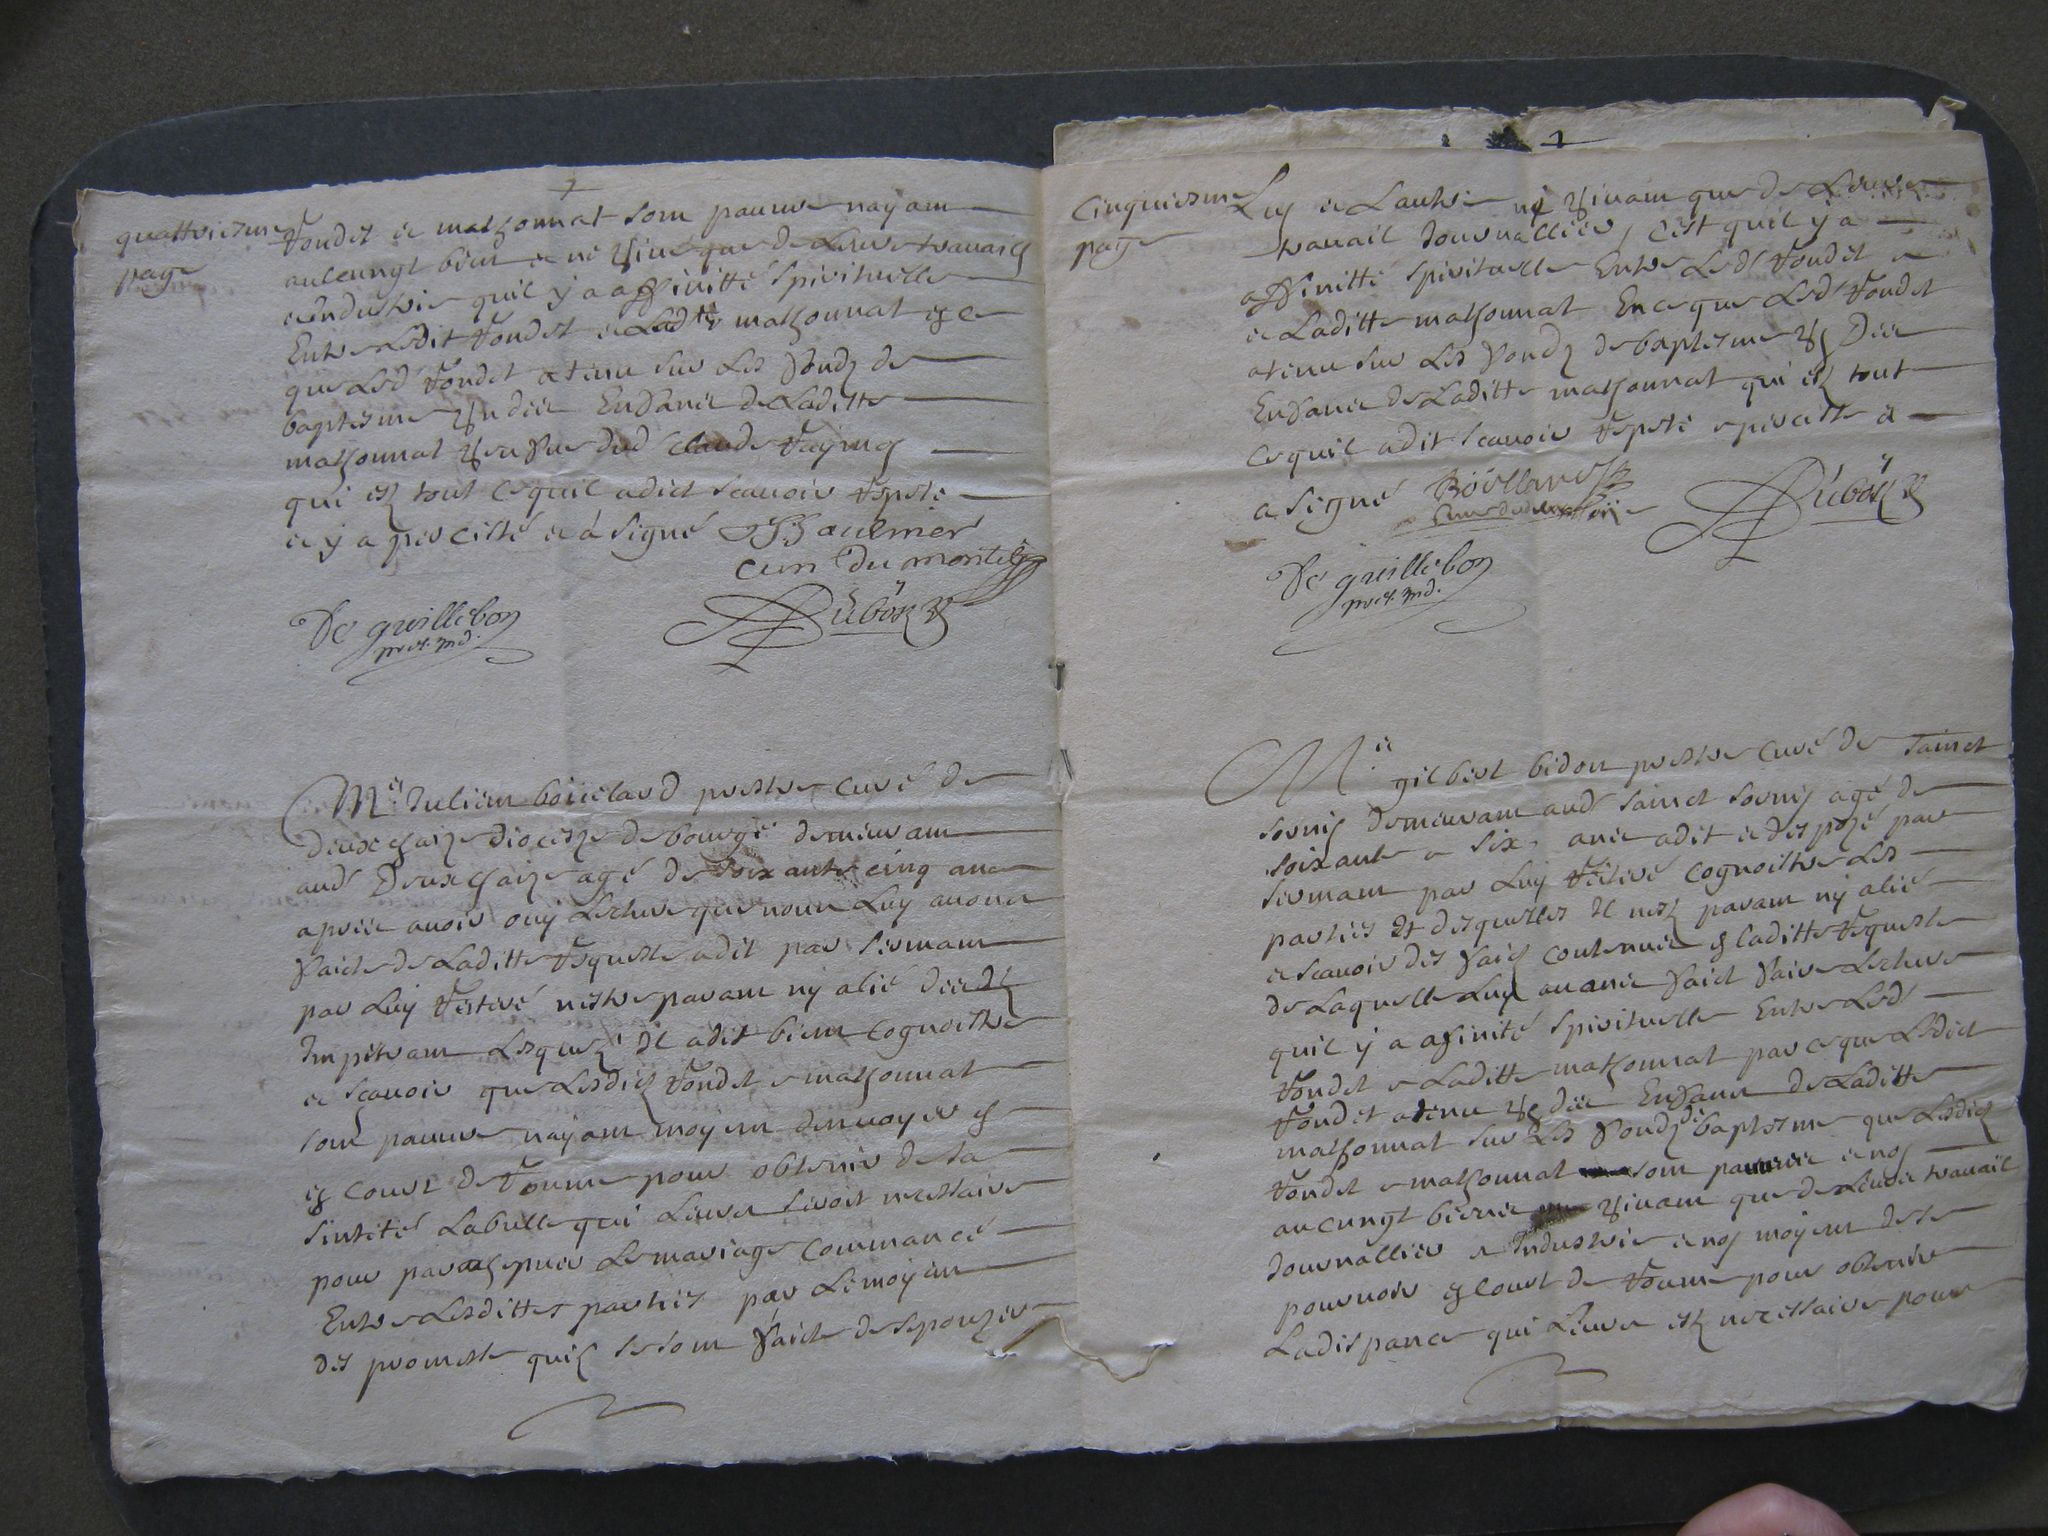 quattriesme
page
Tondet et mathonnat sont pauvre nayant
aulcungt bien et ne vive que de Leurs travaily
et Industrie quil y a affinitté Spirituelle
Entre Ledit Tondet et Ladtte mathonnat
que Led Tondet a tenu sur Les fondz de
baptesme Un des Enfans de Laditte
mathonnat dud Claude
qui est tout ce quil a dict scauoir
et y a percisté et a Signé Saulnier
Curé Du montel
De guillebon
prot. Ind.
Dubost
Mre Julien boüelard prestre curé de
deux chaize diocesze de bourge demeurant
aud Deux chaize agé de soixante cinq ans
apres auoir ouy Lecture que nous Luy auons
faicte de Laditte Requeste a dit par serment
par Luy Reiteré nestre parant ny alié des
Impetrant Lesquelz Il a dit bien cognoistre
et scauoir que Lesdict Tondet et mathonnat
sont pauvre nayant moyen denuoyer en
en court de Romme pour obtenir de sa
sinteté La bulle qui Leurs seroit nessaire
pour Le mariage commancé
Entre Lesdittes parties par Le moyen
des promesse quil se sont faicte de sepouzer
Cinquiesme
page
Luy et Lautre ny vivant que de Leurs
travail Journallier, cest quil y a
affinitté spirituelle Entre Led Tondet et
et Laditte mathonnat En ce que Led Tondet
a tenu sur Les fondz de baptesme Un Des
Enfans de Laditte mathonnat qui est tout
ce quil a dit scauoir et
a Signé Boüellard
De guillebon
prot. Ind.
Dubost
Mre gilbert bidon prestre curé de sainct
sornin demeurant aud sainct sornin agé de
soixante et six, ans a dit et depozé par
serment par Luy Reiteré cognoistre Les
parties Et desquelles Il nest parant ny alié
et scauoir des faict contenus en laditte Requeste
de Laquelle Luy auons faict faire Lecture
quil y a afinité spirituelle Entre Led
Tondet et Laditte mathonnat par ce que Ledict
Tondet a tenu Un des Enfans de Laditte
mathonnat sur Les fondz de baptesme que Lesdict
Tondet et mathonnat sont pauvres et nont
aucungt biens vivant que de Leurs travail
Journallier et Industrie et nont moyens de se
pourvoir en Court de Romme pour obtenir
La dispance qui Leurs est necessaire pour